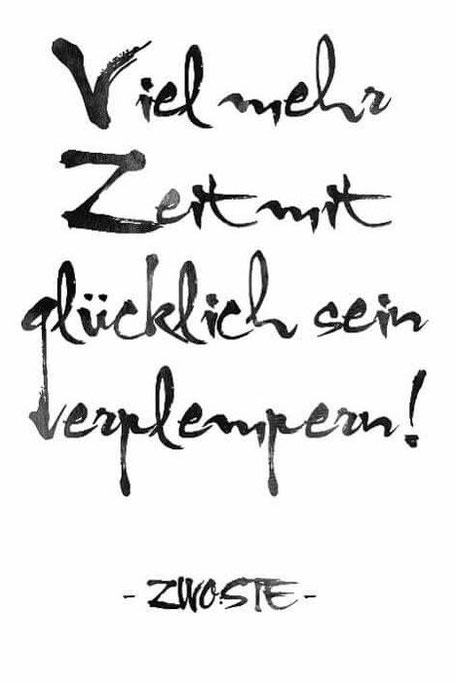 Viel mehr
Zeit mit
glücklich sein
verplempern!
- ZWO.STE -